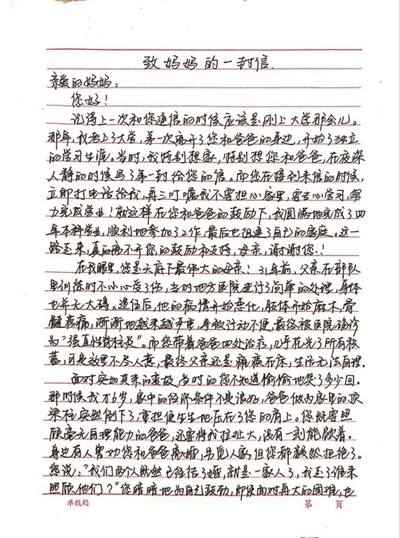 致妈妈的一封信
亲爱的妈妈：
您好！
记得上一次和您通信的时候应该是刚上大学那会儿。
那年，我考上了大学，第一次离开了您和爸爸的身边，开始了独立
的学习生涯。当时，我特别想家，特别想您和爸爸，在夜深
人静的时候写了第一封给您的信。而您在接到来信的时候，
立即打电话给我，再三叮嘱我不要担心家里，安心学习，努
力完成学业！就这样在您和爸爸的鼓励下，我圆满地完成了四
年本科学业，顺利地参加了工作，最后也组建了自己的家庭。这一
路走来，真的离不开您的鼓励和支持，母亲，谢谢您！
在我眼里，您是天底下最伟大的母亲！31年前，父亲在部队
里训练时不小心受了伤，当时地方医院进行了简单的处理，身体
也并无大碍。退伍后，他的病情开始恶化，肢体开始麻木，骨
髓疼痛，渐渐地越来越严重，导致行动不便，最后被医院确诊
为“强直性脊柱炎”。而您带着爸爸四处治疗，几乎花光了所有积
蓄，可是效果不尽人意，最终父亲还是瘫痪在床，生活无法自理。
面对突如其来的变故，当时的您不知道偷偷地哭了多少回。
那时候我才6岁，家中的经济条件不是很好，爸爸做为家里的顶
梁柱突然倒下了，重担便生生地压在了您的肩上。您既要照
顾毫无自理能力的爸爸，还要将我拉扯大，没有一刻能歇着。
身边有人劝您和爸爸离婚，另觅人家，但您都毅然拒绝了。
您说：“我们两个人既然已经结了婚，就是一家人了，我走了谁来
照顾他们？”您暗暗地为自己鼓劲，即使面对再大的困难，也
单线稿 第 页